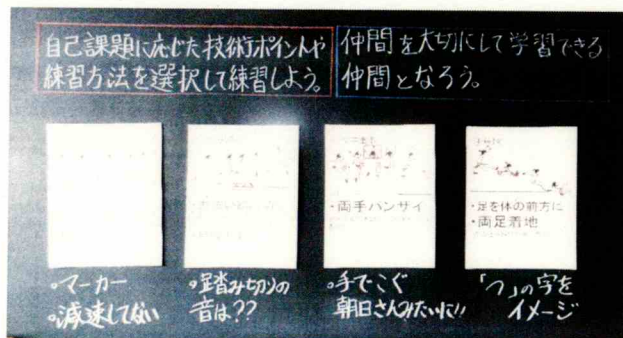 自己課題に応じた技術ポイントや
練習方法を選択して練習しよう。
仲間を大切にして学習できる
仲間となろう。
・両手バンザイ
・足を体の前方に
・両足着地
・マーカー
・減速してない
・踏み切りの
音は??
・手でこぐ
朝日さんみたいに!!
「つ」の字を
イメージ